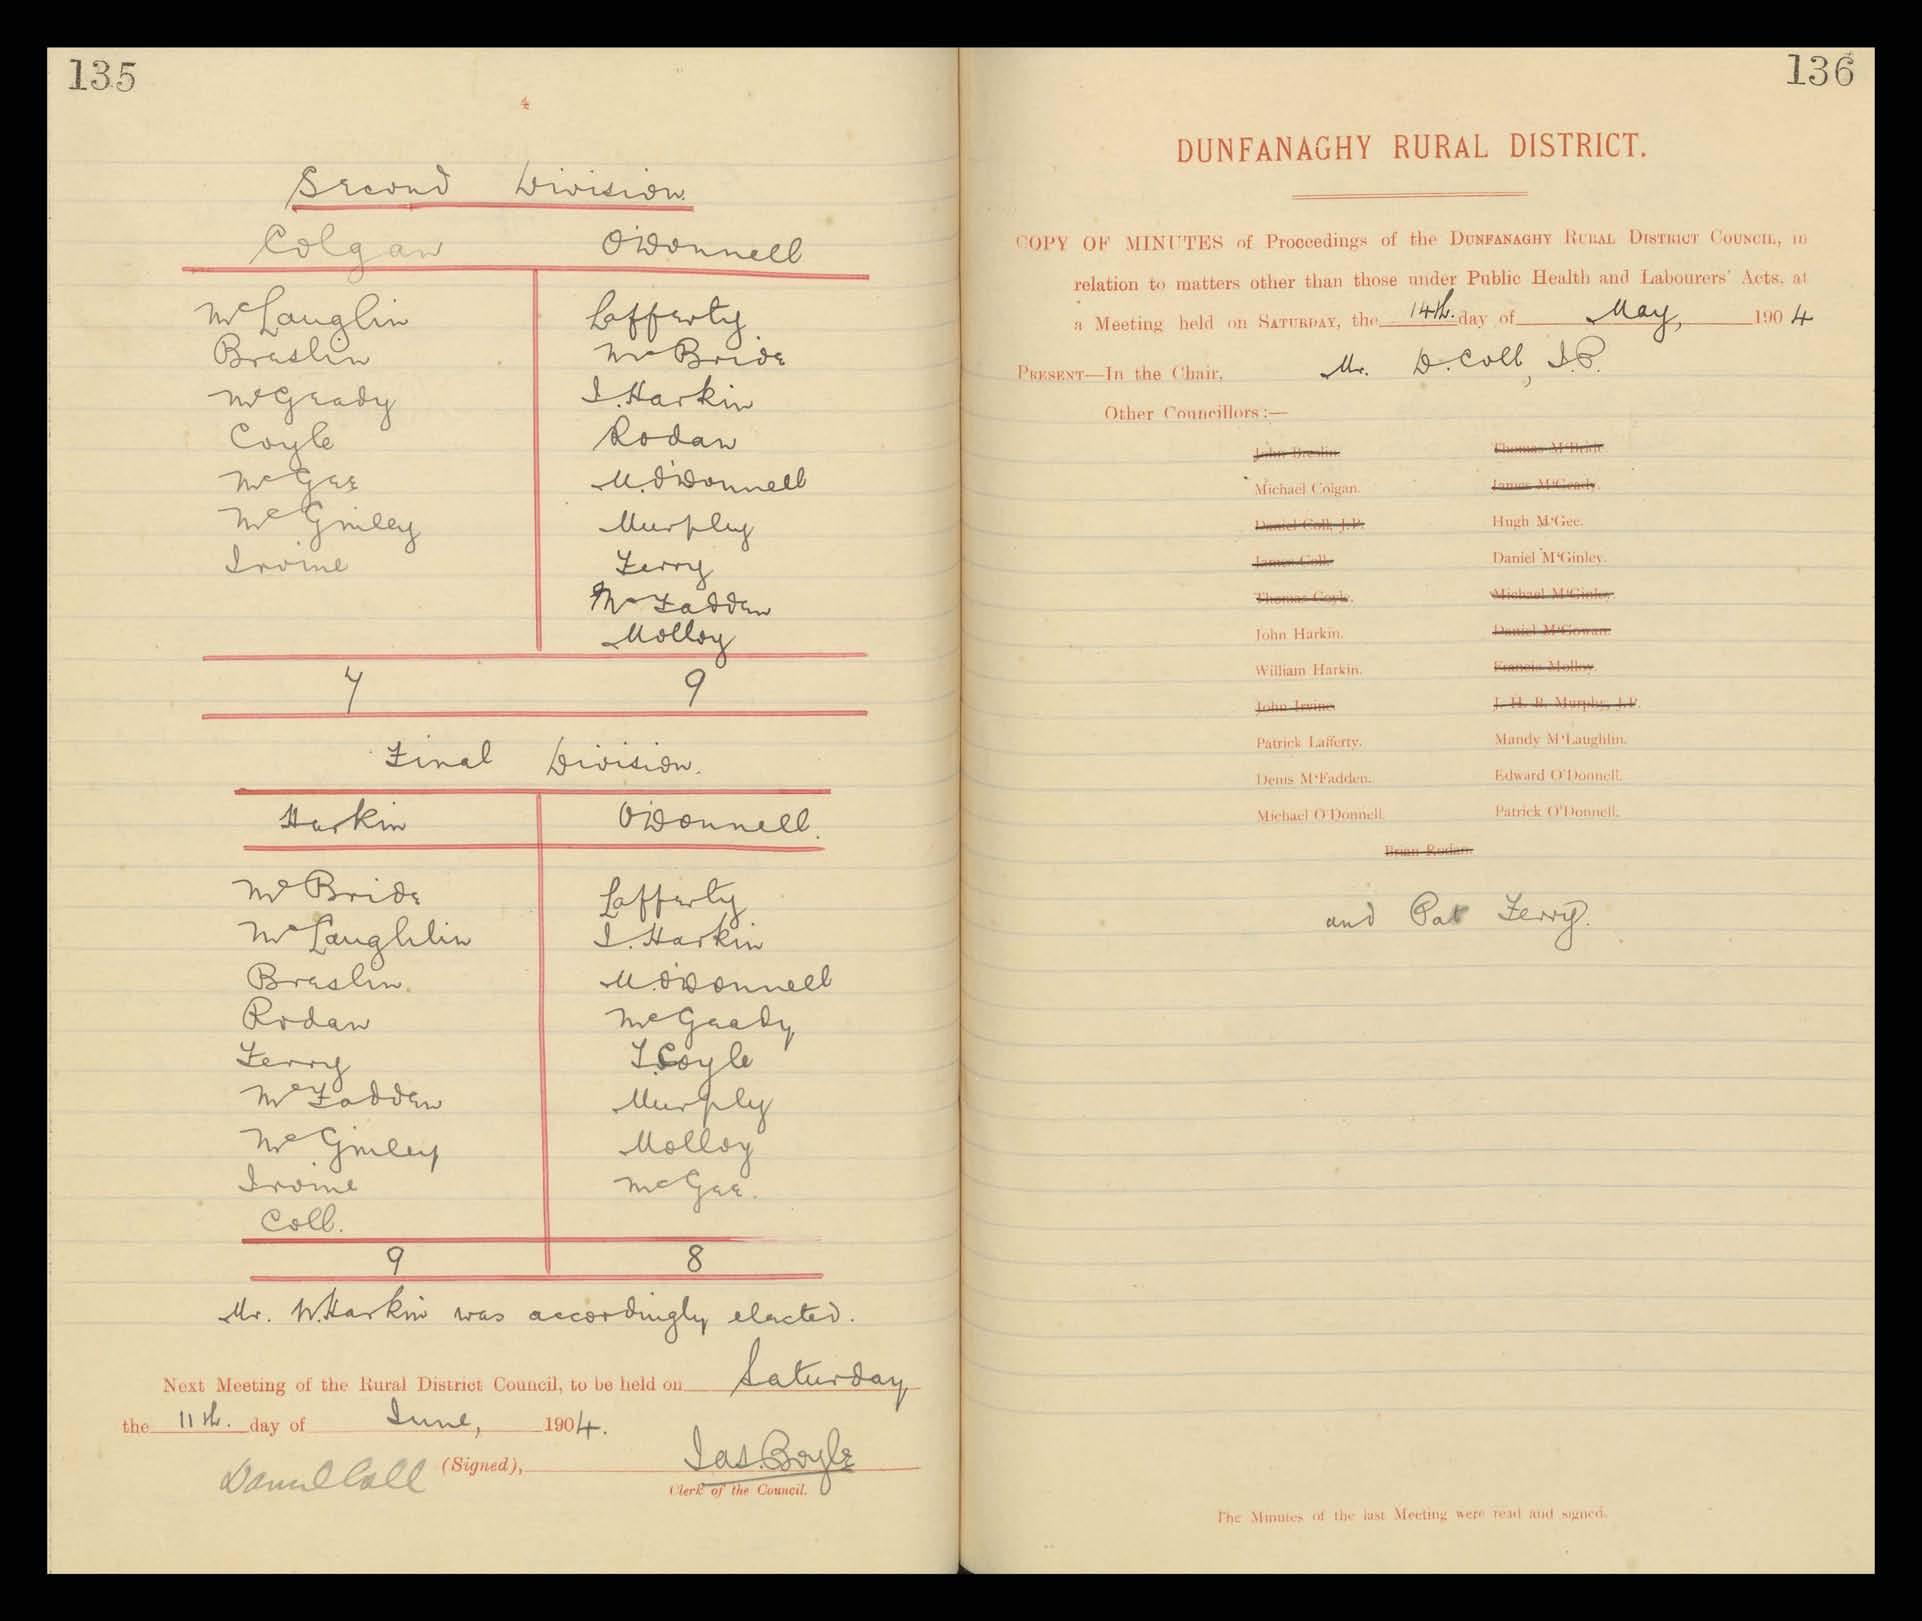 135
4
Second Division.
Colgan O'Donnell
McLauglin Lafferty
Breslin McBride
McGeady J. Harkin
Coyle Rodan
McGee M. O'Donnell
McGinley Murphy
Irvine Ferry
McFadden
Molloy
7 9
Final Division.
Harkin O'Donnell.
McBride Lafferty
McLaughlin J. Harkin
Breslin M. O'Donnell
Rodan McGeady
Ferry T. Coyle
McFadden Murphy
McGinley Molloy
Irvine McGee.
Coll.
9 8
Mr. W. Harkin was accordingly elected.
Next Meeting of the Rural District Council, to be held on Saturday
the 11th. day of June, 1904.
Daniel Coll (Signed), Jas. Boyle
Clerk of the Council.
136
DUNFANAGHY RURAL DISTRICT.
COPY OF MINUTES of Proceedings of the DUNFANAGHY RURAL DISTRICT COUNCIL, in
relation to matters other than those under Public Health and Labourers' Acts, at
a Meeting held on SATURDAY, the 14th. day of May, 1904
PRESENT—In the Chair, Mr. D. Coll, J.P.
Other Councillors:—
John Breslin. Thomas M'Bride.
Michael Colgan. James M'Geady.
Daniel Coll, J.P. Hugh M'Gee.
James Coll. Daniel M'Ginley.
Thomas Coyle. Michael M'Ginley.
John Harkin. Daniel M'Gowan.
William Harkin. Francis Molloy.
John Irvine. J. H. B. Murphy, J.P.
Patrick Lafferty. Mandy M'Laughlin.
Denis M'Fadden. Edward O'Donnell.
Michael O'Donnell. Patrick O'Donnell.
Brian Rodan.
and Pat Ferry.
The Minutes of the last Meeting were read and signed.